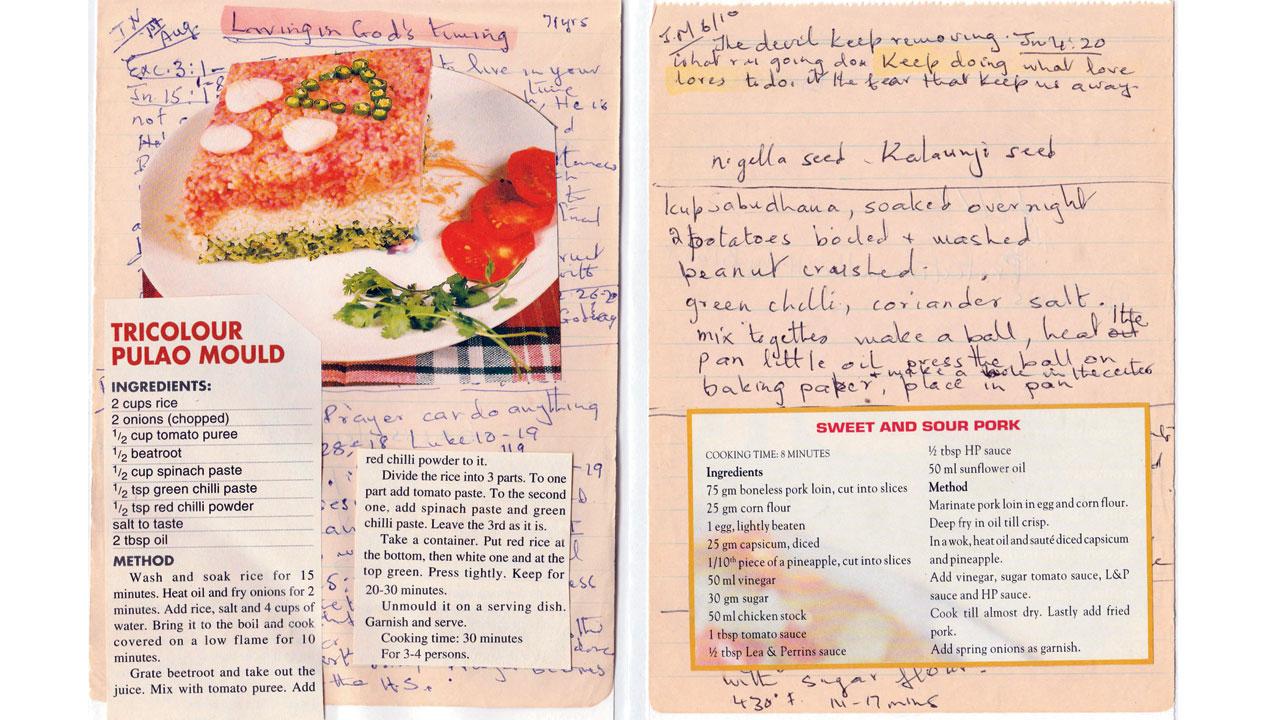 Living in God's timing
7 yrs
J.N
1st
Aug
Exc. 3:1-
to live in your
Jn 15:1-8
time
He is
not
TRICOLOUR
PULAO MOULD
INGREDIENTS:
2 cups rice
2 onions (chopped)
1/2 cup tomato puree
1/2 beatroot
1/2 cup spinach paste
1/2 tsp green chilli paste
1/2 tsp red chilli powder
salt to taste
2 tbsp oil
METHOD
Wash and soak rice for 15
minutes. Heat oil and fry onions for 2
minutes. Add rice, salt and 4 cups of
water. Bring it to the boil and cook
covered on a low flame for 10
minutes.
Grate beetroot and take out the
juice. Mix with tomato puree. Add
Prayer can do anything
28:18 Luke 10-19
119
red chilli powder to it.
Divide the rice into 3 parts. To one
part add tomato paste. To the second
one, add spinach paste and green
chilli paste. Leave the 3rd as it is.
Take a container. Put red rice at
the bottom, then white one and at the
top green. Press tightly. Keep for
20-30 minutes.
Unmould it on a serving dish.
Garnish and serve.
Cooking time: 30 minutes
For 3-4 persons.
the H.S.
J.M 6/10
The devil keep removing. Jn 4:20
what r u going don Keep doing what love
loves to do. it the fear that keep us away.
nigella seed Kalaunji seed
1 cup sabudhana, soaked overnight
2 potatoes boiled + mashed
peanut crushed.
green chilli, coriander salt.
mix together make a ball, heat the
pan little oil press the ball on
+ make a hole in the center
baking paper, place in pan
SWEET AND SOUR PORK
COOKING TIME: 8 MINUTES
Ingredients
75 gm boneless pork loin, cut into slices
25 gm corn flour
1 egg, lightly beaten
25 gm capsicum, diced
1/10th piece of a pineapple, cut into slices
50 ml vinegar
30 gm sugar
50 ml chicken stock
1 tbsp tomato sauce
½ tbsp Lea & Perrins sauce
½ tbsp HP sauce
50 ml sunflower oil
Method
Marinate pork loin in egg and corn flour.
Deep fry in oil till crisp.
In a wok, heat oil and sauté diced capsicum
and pineapple.
Add vinegar, sugar tomato sauce, L&P
sauce and HP sauce.
Cook till almost dry. Lastly add fried
pork.
Add spring onions as garnish.
with sugar flour.
430°F. 14-17 mins